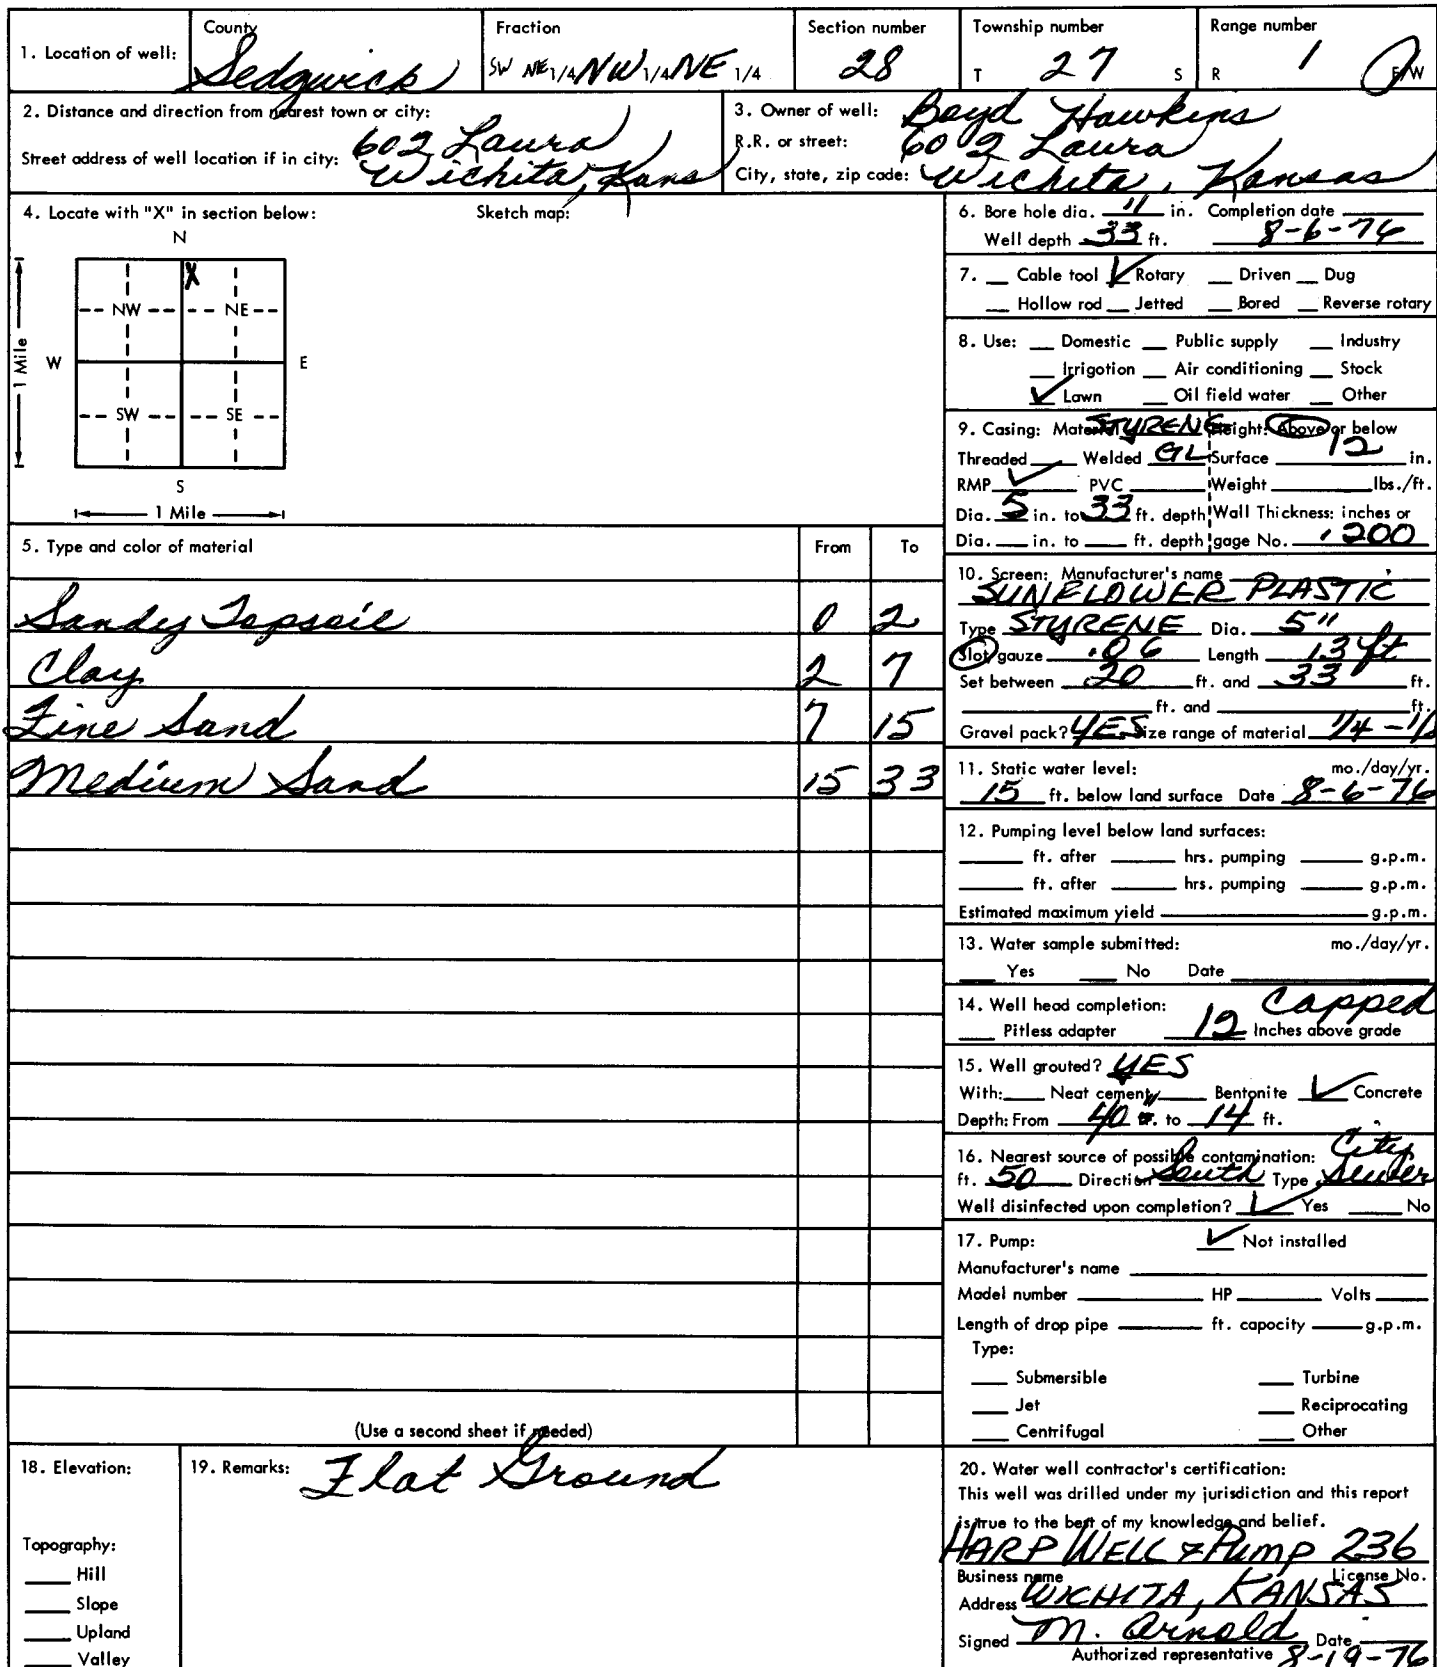 1. Location of well: County Sedgwick Fraction SW NE 1/4 NW 1/4 NE 1/4 Section number 28 Township number T 27 S Range number R 1 E/W
2. Distance and direction from nearest town or city:
Street address of well location if in city: 602 Laura
Wichita, Kans
3. Owner of well: Boyd Hawkins
R.R. or street: 602 Laura
City, state, zip code: Wichita, Kansas
4. Locate with "X" in section below: Sketch map:
N
X
NW NE
W E
1 Mile
SW SE
S
1 Mile
5. Type and color of material From To
Sandy Topsoil 0 2
Clay 2 7
Fine Sand 7 15
Medium Sand 15 33
(Use a second sheet if needed)
6. Bore hole dia. 11 in. Completion date
Well depth 33 ft. 8-6-76
7. Cable tool ✓ Rotary Driven Dug
Hollow rod Jetted Bored Reverse rotary
8. Use: Domestic Public supply Industry
Irrigation Air conditioning Stock
✓ Lawn Oil field water Other
9. Casing: Material STYRENE Height: Above or below
Threaded Welded GL Surface 12 in.
RMP ✓ PVC Weight lbs./ft.
Dia. 5 in. to 33 ft. depth Wall Thickness: inches or
Dia. in. to ft. depth gage No. .200
10. Screen: Manufacturer's name
SUNFLOWER PLASTIC
Type STYRENE Dia. 5"
Slot/gauze .06 Length 13 ft
Set between 20 ft. and 33 ft.
ft. and ft.
Gravel pack? YES Size range of material 1/4 -
11. Static water level: mo./day/yr.
15 ft. below land surface Date 8-6-76
12. Pumping level below land surfaces:
ft. after hrs. pumping g.p.m.
ft. after hrs. pumping g.p.m.
Estimated maximum yield g.p.m.
13. Water sample submitted: mo./day/yr.
Yes No Date
14. Well head completion: Capped
Pitless adapter 12 Inches above grade
15. Well grouted? YES
With: Neat cement Bentonite ✓ Concrete
Depth: From 40" to 14 ft.
16. Nearest source of possible contamination: City
ft. 50 Direction South Type Sewer
Well disinfected upon completion? ✓ Yes No
17. Pump: ✓ Not installed
Manufacturer's name
Model number HP Volts
Length of drop pipe ft. capacity g.p.m.
Type:
Submersible Turbine
Jet Reciprocating
Centrifugal Other
18. Elevation:
Topography:
Hill
Slope
Upland
Valley
19. Remarks: Flat Ground
20. Water well contractor's certification:
This well was drilled under my jurisdiction and this report
is true to the best of my knowledge and belief.
HARP WELL & PUMP 236
Business name License No.
Address WICHITA, KANSAS
Signed M. Arnold Date
Authorized representative 8-19-76